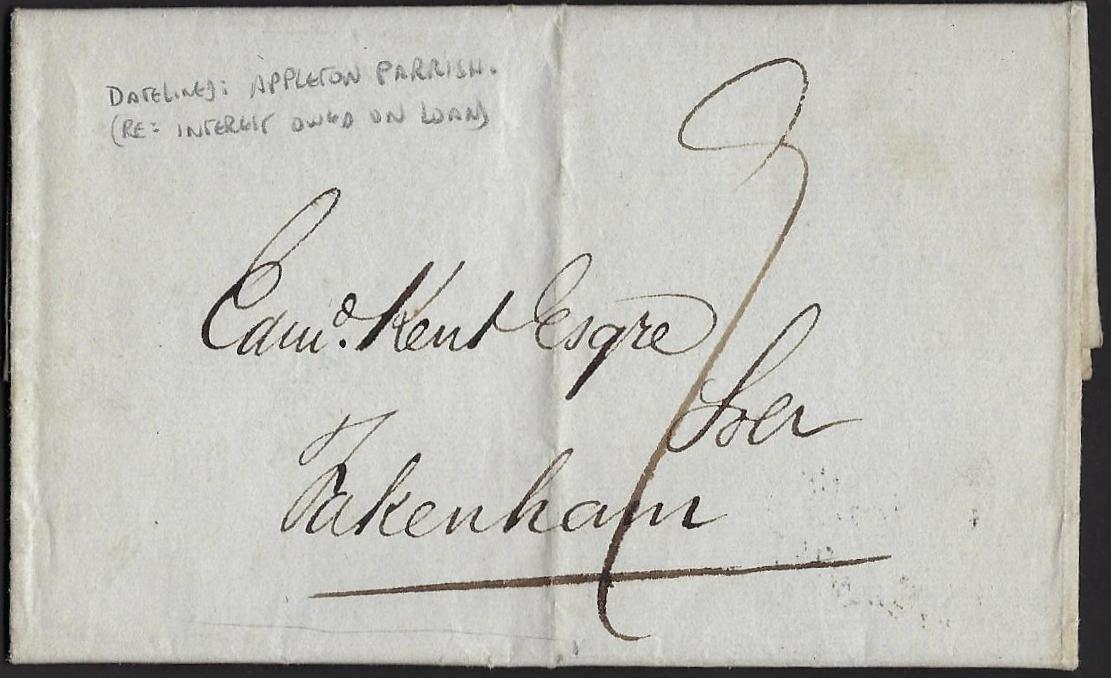 DATELINED: APPLETON PARRISH.
(RE: INTEREST OWED ON LOAN)
Edmd. Kent Esqre
Fakenham